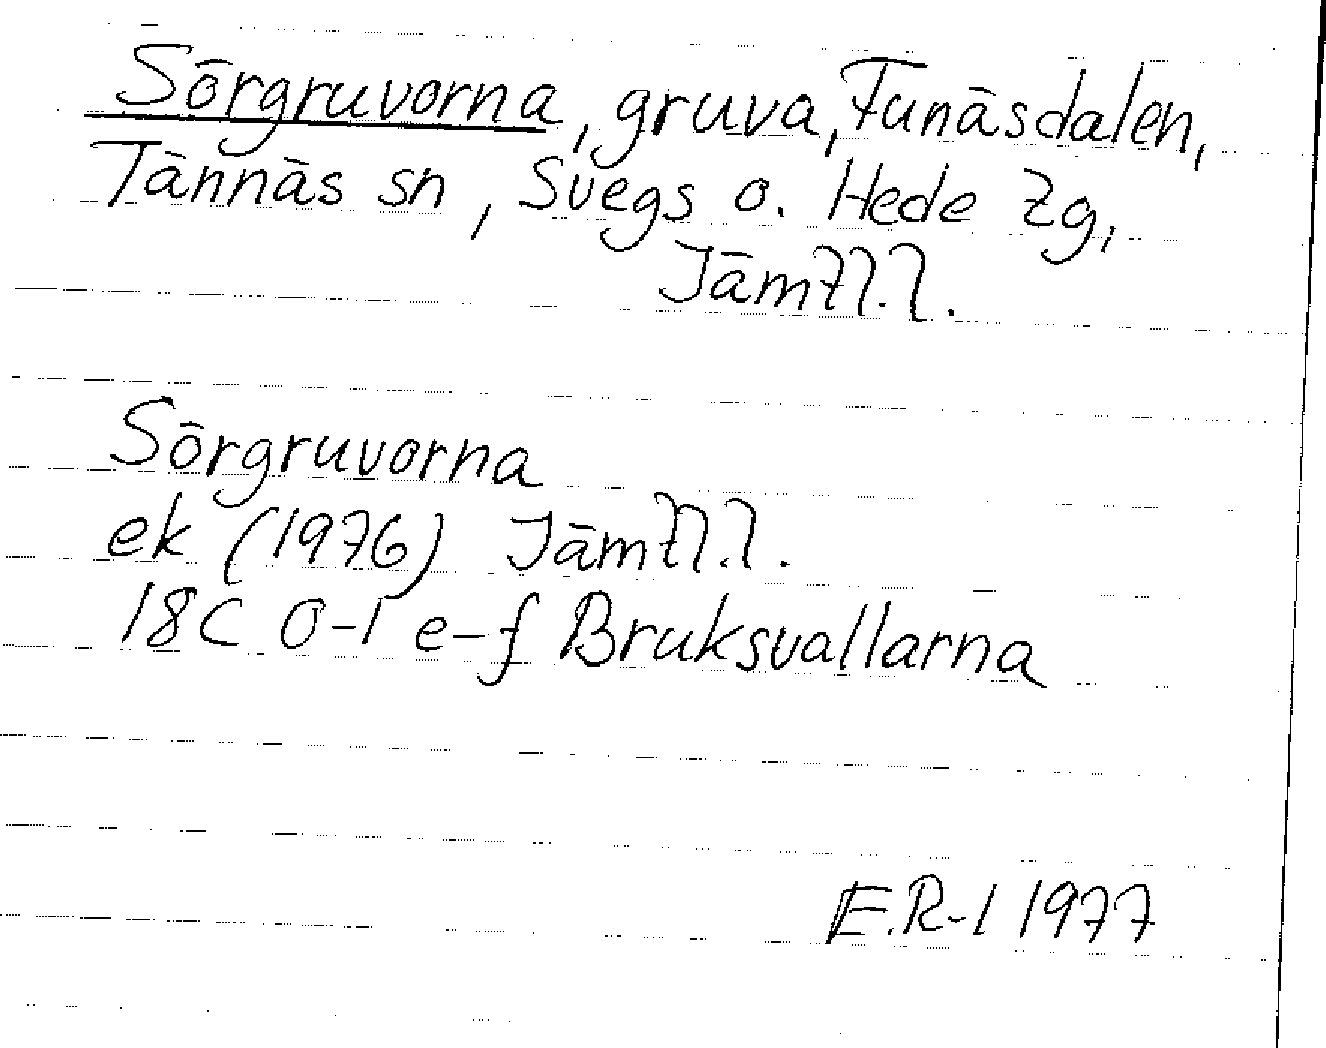 Sörgruvorna, gruva, Funäsdalen,
Tännäs sn, Svegs o. Hede lg,
Jämtl.l.
Sörgruvorna
ek (1976) Jämtl.l.
18C 0-1 e-f Bruksvallarna
E.R-l 1977